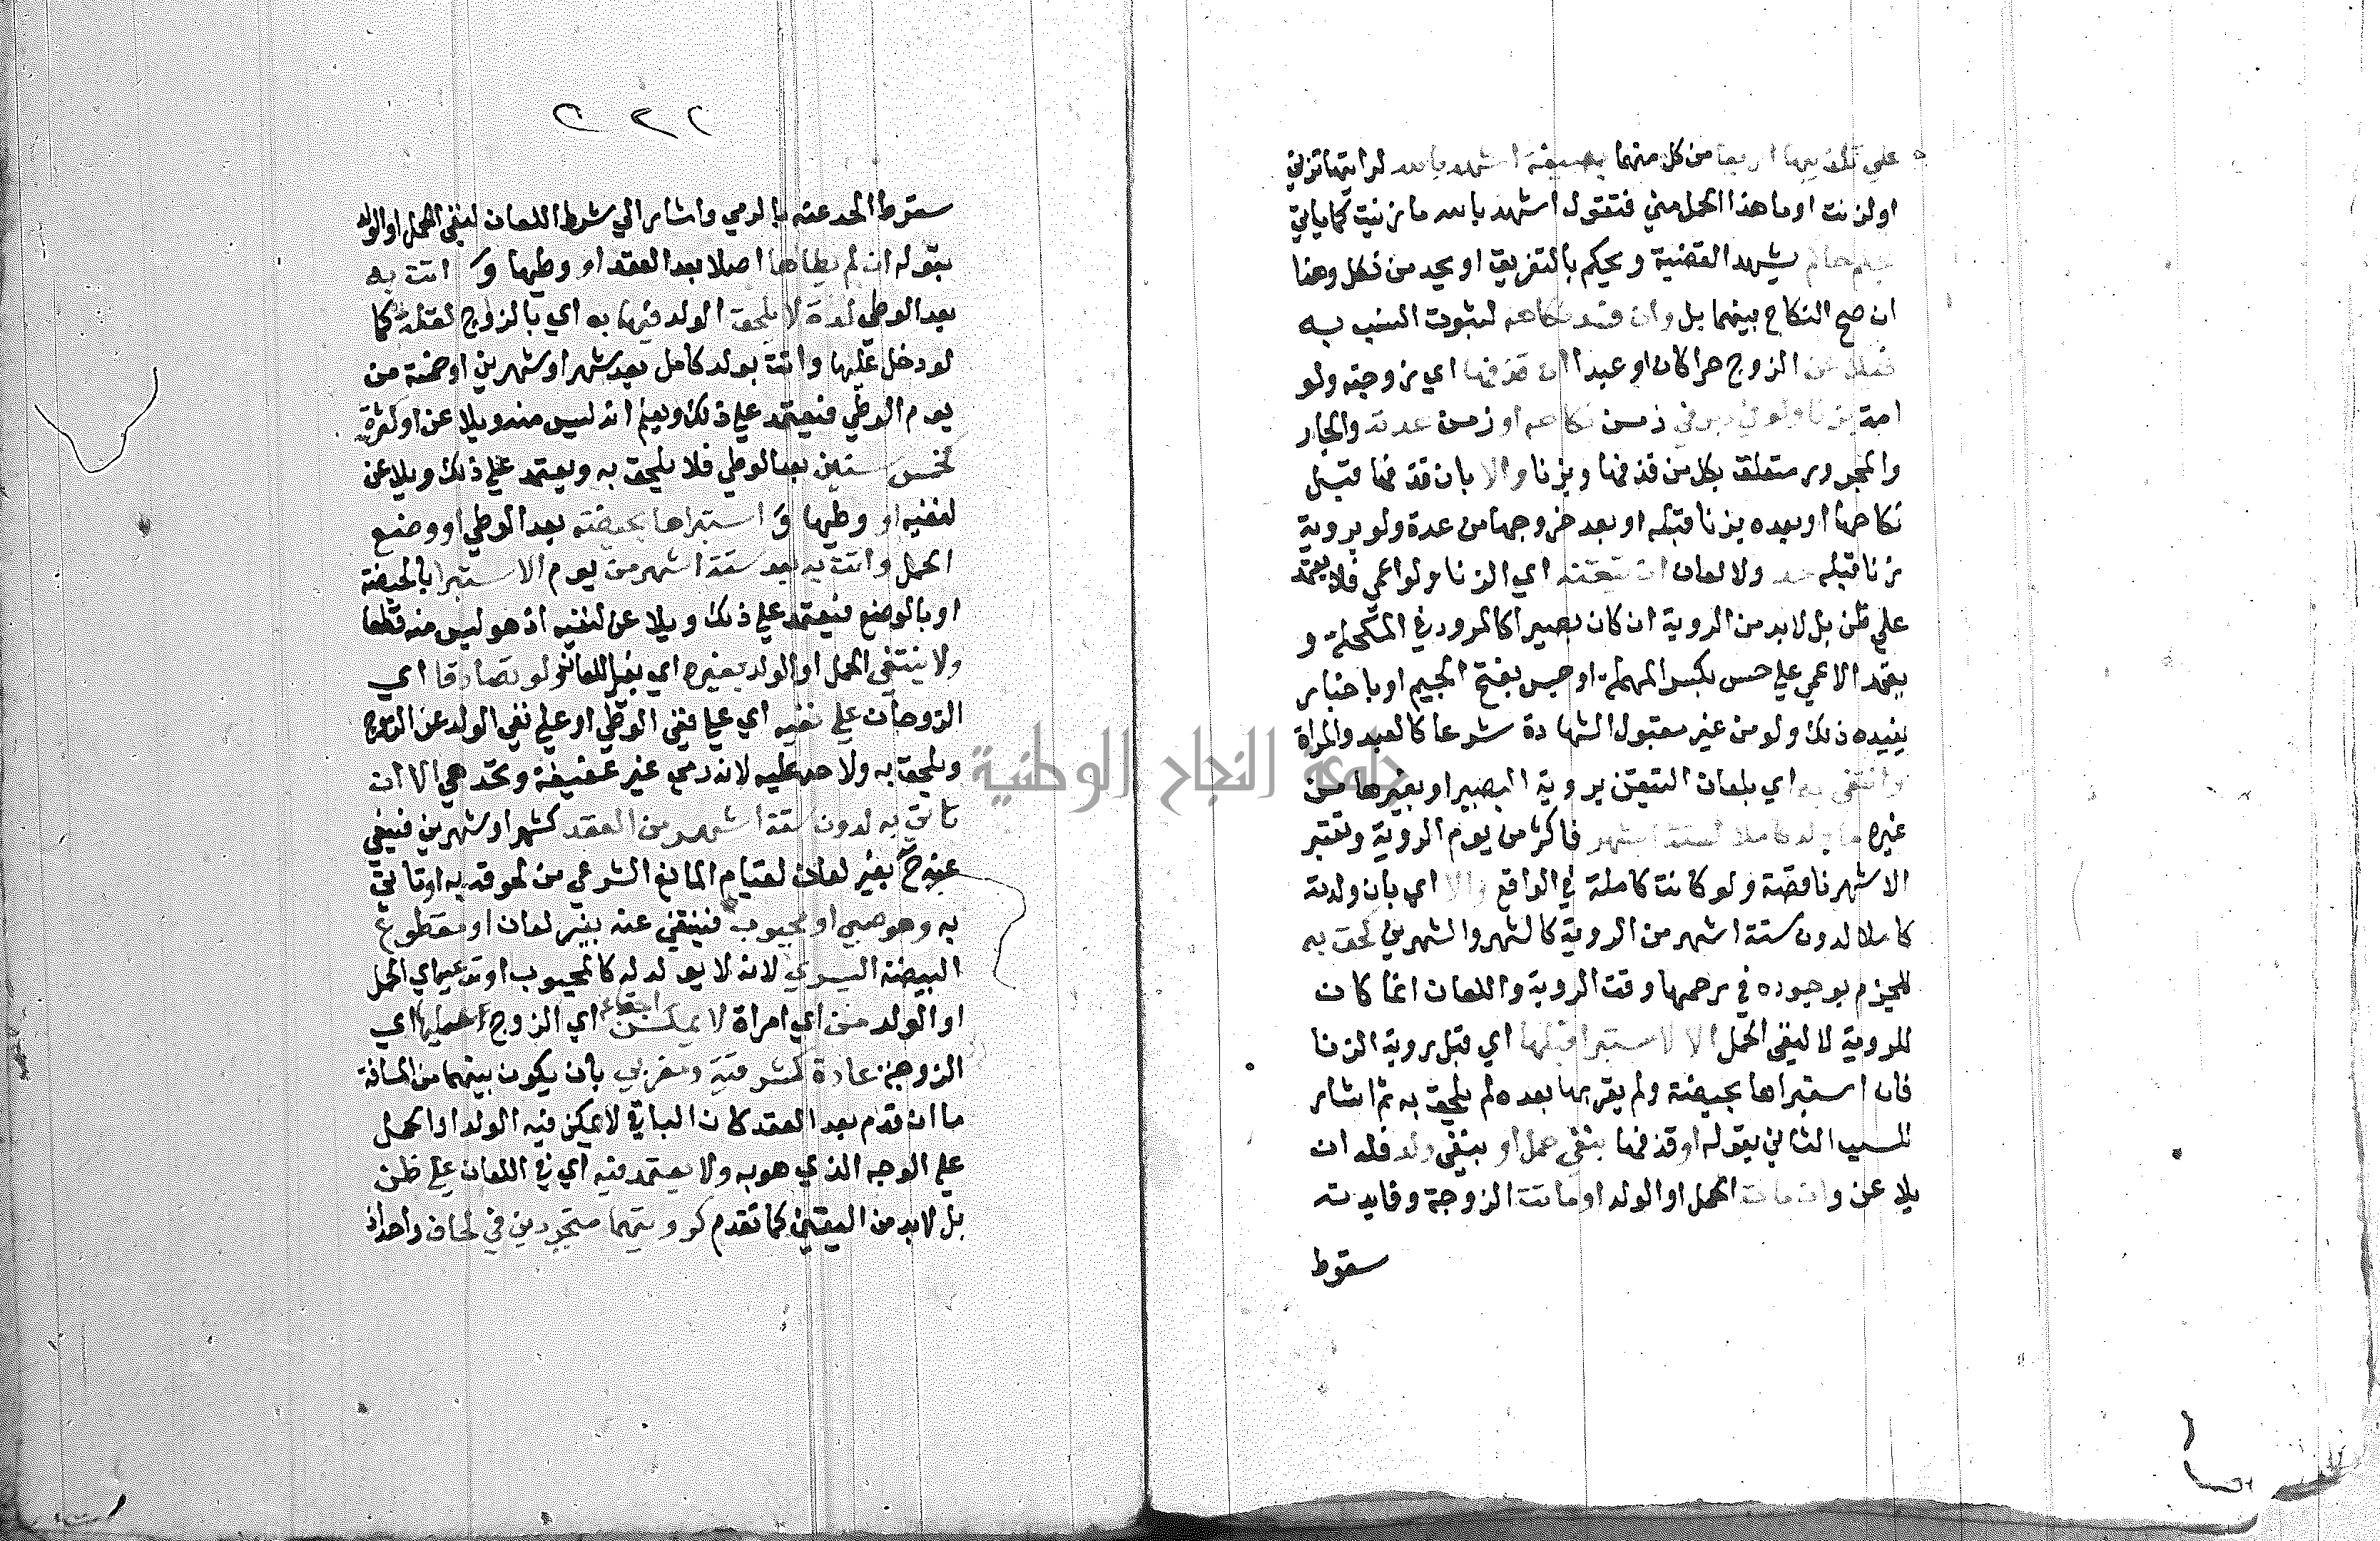 على تكذيبها اربعا من كل منهما بصيغة اشهد بالله لرايتها تزني
او لزنت او ما هذا الحمل مني فتقول اشهد بالله ما زنيت كما ياتي
يشهد القضية ويحكم بالتفريق او يحد من نكل وهذا
ان صح النكاح بينهما بل وان فسد نكاحه لثبوت النسب به
الزوج حرا كان او عبدا ان قذفها اي زوجته ولو
امة بزنا ولو في دبر في زمن نكاحه او زمن عدته والجار
والمجرور متعلق بكل من قذفها وبزنا والا بان قذفها قبل
نكاحها او بعده بزنا قبله او بعد خروجها من عدة ولو بروية
زنا قبله حد ولا لعان ان تيقنه اي الزنا ولو اعمى فلا يعتمد
على ظن بل لا بد من الروية ان كان بصيرا كالمرود في المكحلة و
يعتمد الاعمى على حس بكسر المهملة او جس بفتح الجيم او باخبار
يفيده ذلك ولو من غير مقبول الشهادة شرعا كالعبد والمراة
وانتفى به اي بلعان التيقن بروية البصير او بغيرها من
غيره ما ولد كاملا لستة اشهر فاكثر من يوم الروية وتعتبر
الاشهر ناقصة ولو كانت كاملة في الواقع والا اي بان ولدته
كاملا لدون ستة اشهر من الروية كالشهر والشهرين لحق به
للجزم بوجوده في رحمها وقت الروية واللعان انما كان
للروية لا لنفي الحمل الا لاستبرا قبلها اي قبل روية الزنا
فان استبراها بحيضة ولم يقربها بعده لم يلحق به ثم اشار
للسبب الثاني بقوله او قذفها بنفي حمل او بنفي ولد فله ان
يلاعن وان مات الحمل او الولد او ماتت الزوجة وفايدته
سقوط
٢٢٢
سقوط الحد عنه بالرمي واشار الى شرط اللعان لنفي الحمل او الولد
بقوله ان لم يطاها اصلا بعد العقد او وطيها و اتت به
بعد الوطي لمدة لا يلحق الولد فيها به اي بالزوج لقلة كما
لو دخل عليها واتت بولد كامل بعد شهر او شهرين او خمسة من
يوم الوطي فيعتمد على ذلك ويعلم انه ليس منه ويلاعن او لكثرة
كخمس سنين بعد الوطي فلا يلحق به ويعتمد على ذلك ويلاعن
لنفيه او وطيها و استبراها بحيضة بعد الوطي او وضع
الحمل واتت به بعد ستة اشهر من يوم الاستبرا بالحيضة
او بالوضع فيعتمد على ذلك ويلاعن لنفيه اذ هو ليس منه قطعا
ولا ينتفي الحمل او الولد بغيره اي بغير اللعان ولو تصادقا اي
الزوجان على نفيه اي على نفي الوطي او على نفي الولد عن الزوج
ويلحق به ولا حد عليه لانه رمى غير عفيفة وتحد هي الا ان
تاتي به لدون ستة اشهر من العقد كشهر او شهرين فينتفي
عنه ح بغير لعان لقيام المانع الشرعي من لحوقه به او تاتي
به وهو صبي او مجبوب فينتفي عنه بغير لعان او مقطوع
البيضة اليسرى لانه لا يولد له كالمجبوب او تدعيه اي الحمل
او الولد من اي امراة لا يمكن اجتماع اي الزوج عليها اي
الزوجة عادة كمشرقية ومغربي بان يكون بينهما من المسافة
ما ان قدم بعد العقد كان الباقي لا يمكن فيه الولد او الحمل
على الوجه الذي هو به ولا يعتمد فيه اي في اللعان على ظن
بل لا بد من اليقين كما تقدم كرويتهما متجردين في لحاف واحد اذ